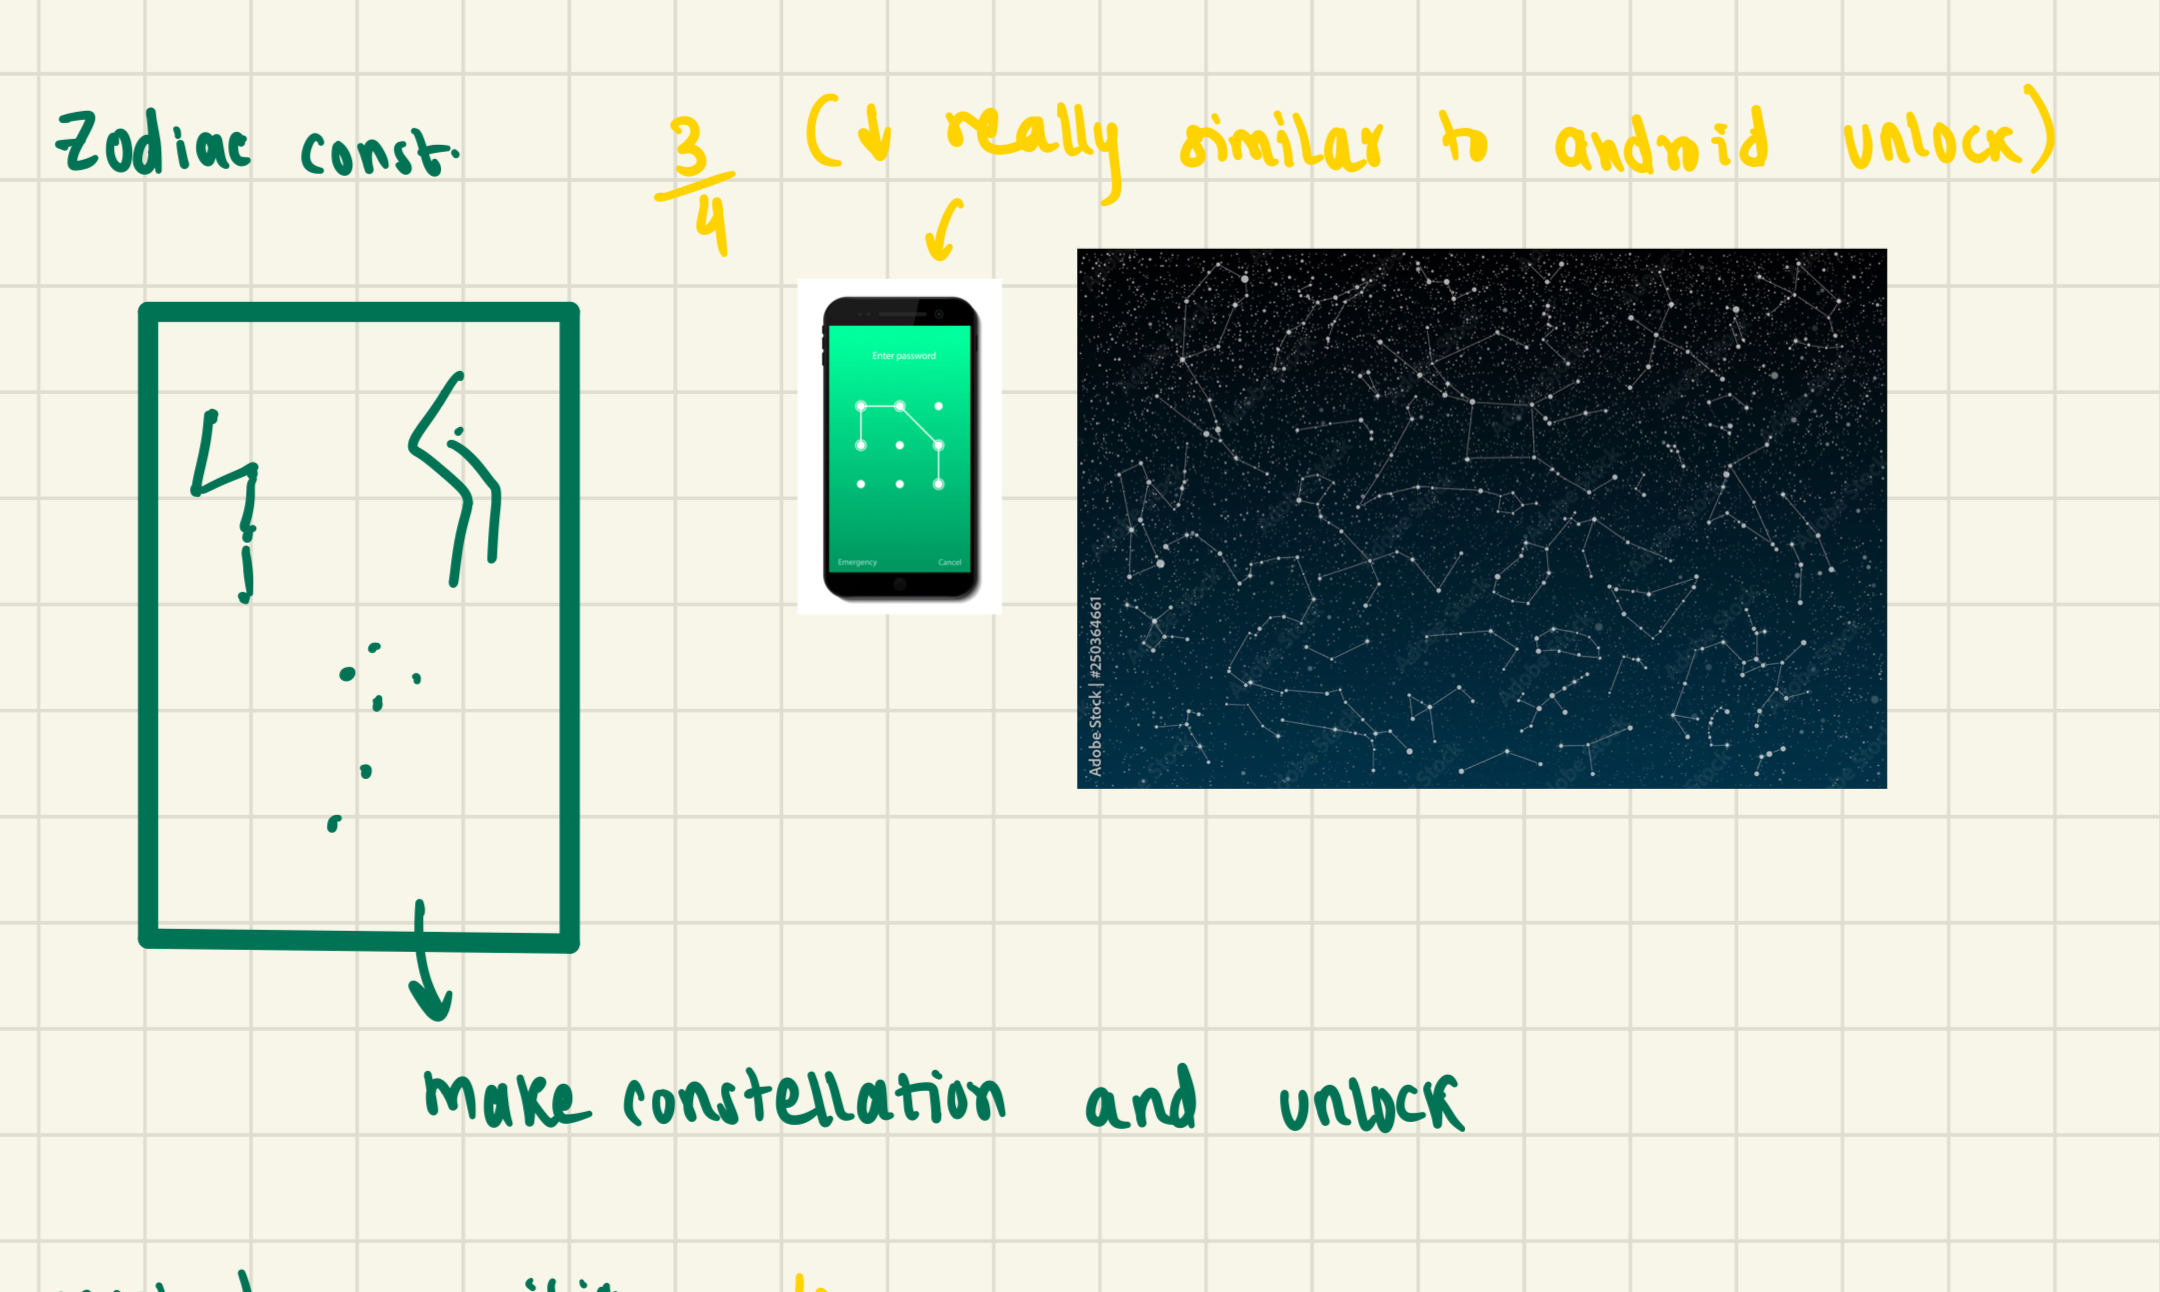 Zodiac const. 3/4 (↓ really similar to android unlock)
Enter password
Emergency Cancel
Adobe Stock | #250364661
Make constellation and unlock